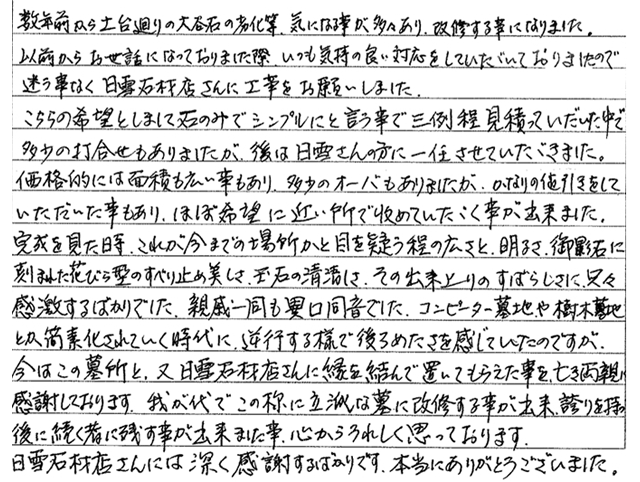 数年前から土台廻りの大谷石の劣化等、気になる事が多々あり、改修する事になりました。
以前からお世話になっておりました際、いつも気持の良い対応をしていただいておりましたので
迷う事なく日雪石材店さんに工事をお願いしました。
こちらの希望としまして石のみでシンプルにと言う事で三例程見積っていだいた中で
多少の打合せもありましたが、後は日雪さんの方に一任させていただきました。
価格的には面積も広い事もあり、多少のオーバもありましたが、かなりの値引をして
いただいた事もあり、ほぼ希望に近い所で収めていただく事が出来ました。
完成を見た時、これが今までの場所かと目を疑う程の広さと、明るさ、御影石に
刻まれた花びら型のすべり止め美しさ、玉石の清潔さ、その出来上りのすばらしさに、只々
感激するばかりでした。親戚一同も異口同音でした。コンピーター墓地や樹木墓地
と又簡素化されていく時代に、逆行する様で後ろめたさを感じていたのですが、
今はこの墓所と、又日雪石材店さんに縁を結んで置いてもらえた事を、亡き両親に
感謝しております。我が代でこの様に立派な墓に改修する事が出来、誇りを持っ
後に続く者に残す事が出来ました事、心からうれしく思っております。
日雪石材店さんには深く感謝するばかりです。本当にありがとうございました。